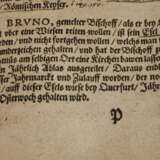 Römischen Keyser.
BRVNO, gemelter Bischoff/ als er bey
über eine Wiesen reiten wollen/ ist sein Esel
den/ und nicht fortgehen wollen/ welches man
sonderzeichen gehalten/ und hat der Bischoff
mals am selben Ort eine Kirchen bawen lassen
Jährlich Ablas ausgetellet/ Daraus end
ser Jahrmarckt und Zulauff worden/ der no
auff dieser Esels wiese bey Querfurt/ Jähr
Osterwoch gehalten wird.
P